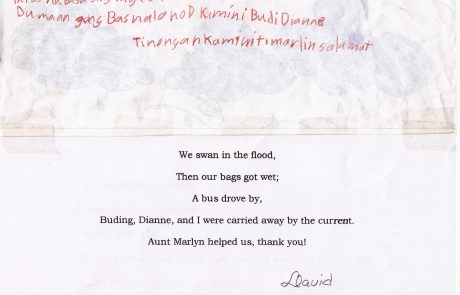 Dumaan gang Bas nalonod Kamini Budi Dianne
Tinongan kami ni ti marlin salamat
We swan in the flood,
Then our bags got wet;
A bus drove by,
Buding, Dianne, and I were carried away by the current.
Aunt Marlyn helped us, thank you!
David